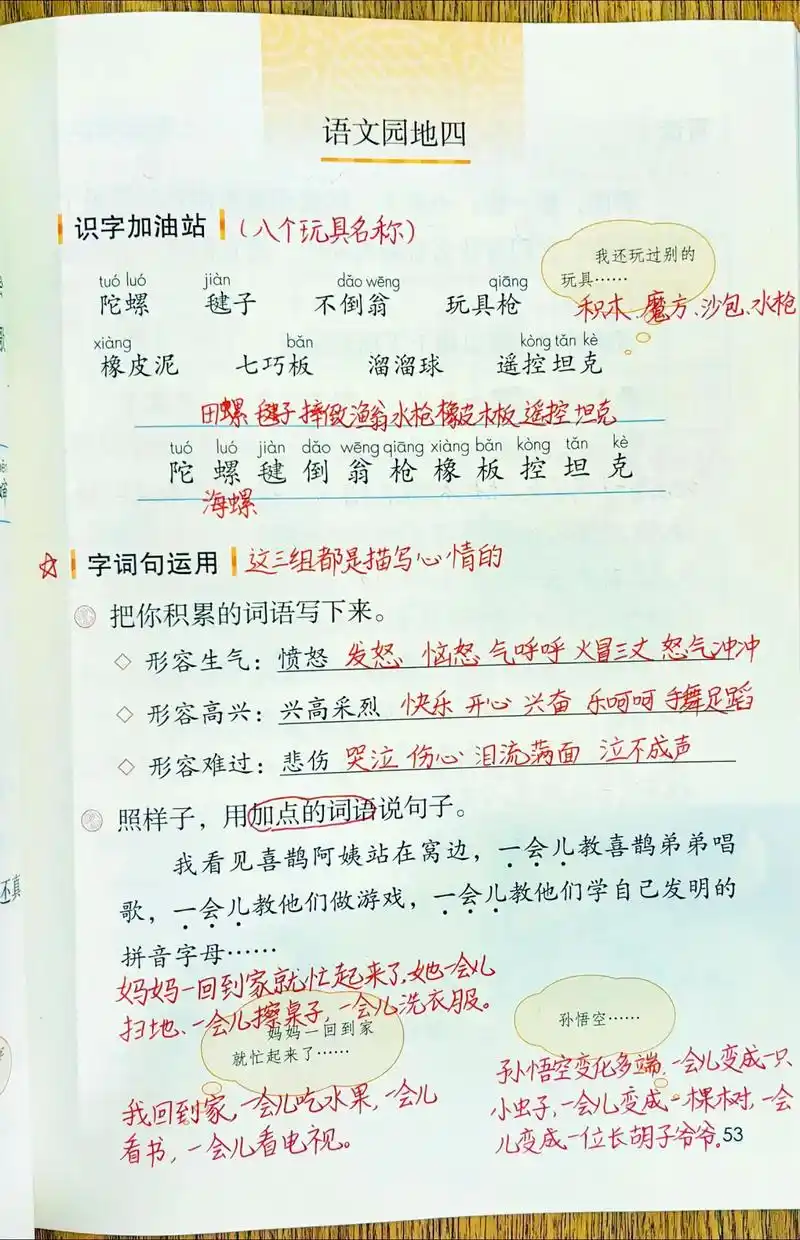 语文园地四
识字加油站 (八个玩具名称)
我还玩过别的
玩具……
积木、魔方、沙包、水枪
tuó luó jiàn dǎo wēng qiāng
陀螺 毽子 不倒翁 玩具枪
xiàng bǎn kòng tǎn kè
橡皮泥 七巧板 溜溜球 遥控坦克
田螺 毽子 摔倒 渔翁 水枪 橡皮 木板 遥控 坦克
tuó luó jiàn dǎo wēng qiāng xiàng bǎn kòng tǎn kè
陀 螺 毽 倒 翁 枪 橡 板 控 坦 克
海螺
☆ 字词句运用 这三组都是描写心情的
把你积累的词语写下来。
◇ 形容生气：愤怒 发怒 恼怒 气呼呼 火冒三丈 怒气冲冲
◇ 形容高兴：兴高采烈 快乐 开心 兴奋 乐呵呵 手舞足蹈
◇ 形容难过：悲伤 哭泣 伤心 泪流满面 泣不成声
照样子，用加点的词语说句子。
我看见喜鹊阿姨站在窝边，一会儿教喜鹊弟弟唱
歌，一会儿教他们做游戏，一会儿教他们学自己发明的
拼音字母……
妈妈一回到家就忙起来了，她一会儿
扫地、一会儿擦桌子，一会儿洗衣服。
妈妈一回到家
就忙起来了……
我回到家，一会儿吃水果，一会儿
看书，一会儿看电视。
孙悟空……
孙悟空变化多端，一会儿变成一只
小虫子，一会儿变成一棵树，一会
儿变成一位长胡子爷爷。
53